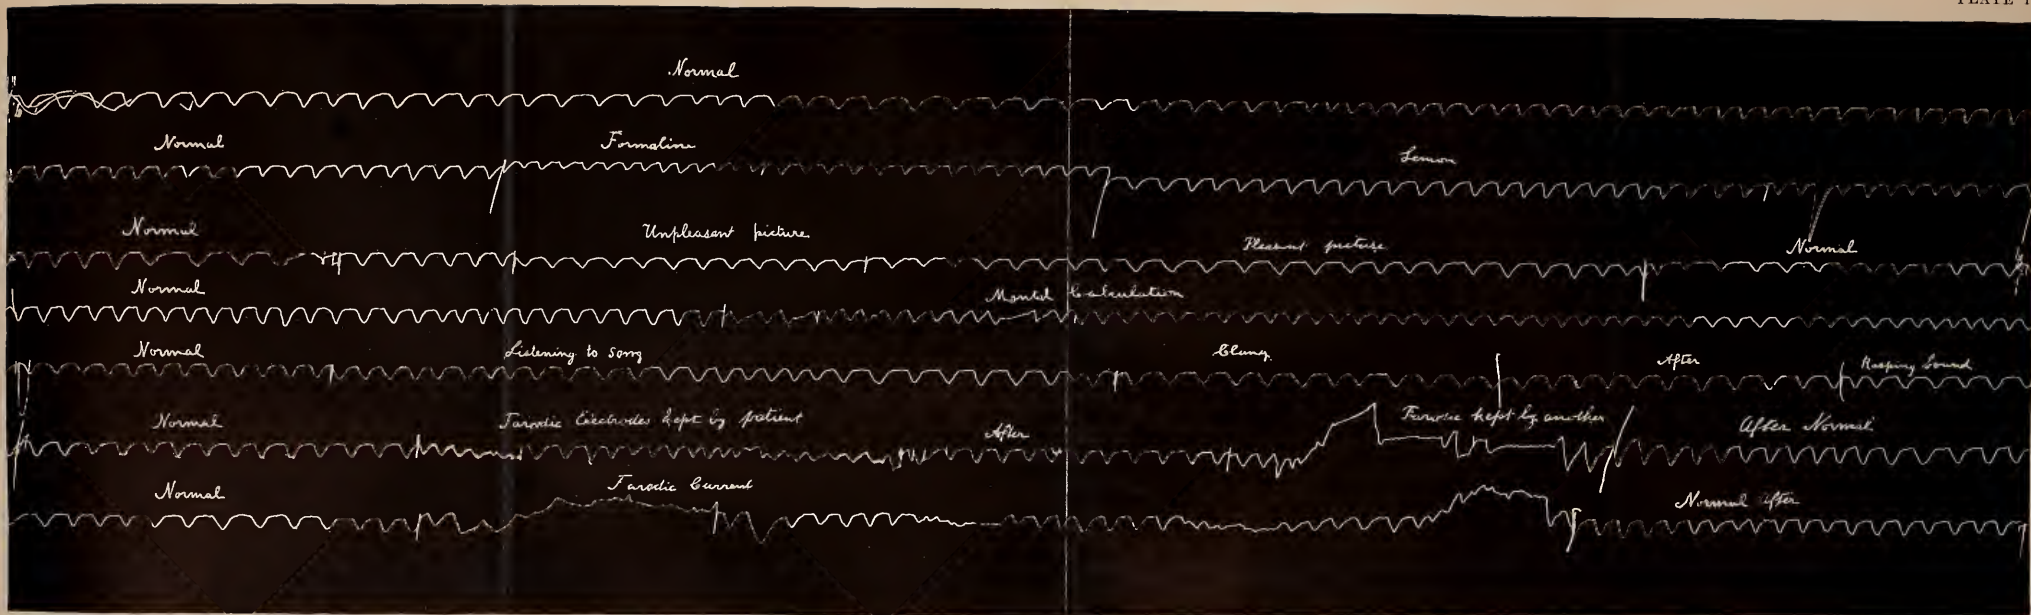 PLATE
Normal
Normal Formaline Lemon
Normal Unpleasant picture Pleasant picture Normal
Normal Mental Calculation
Normal Listening to song Clang After Rasping Sound
Normal Faradic Electrodes kept by patient After Faradic kept by another After Normal
Normal Faradic Current Normal After